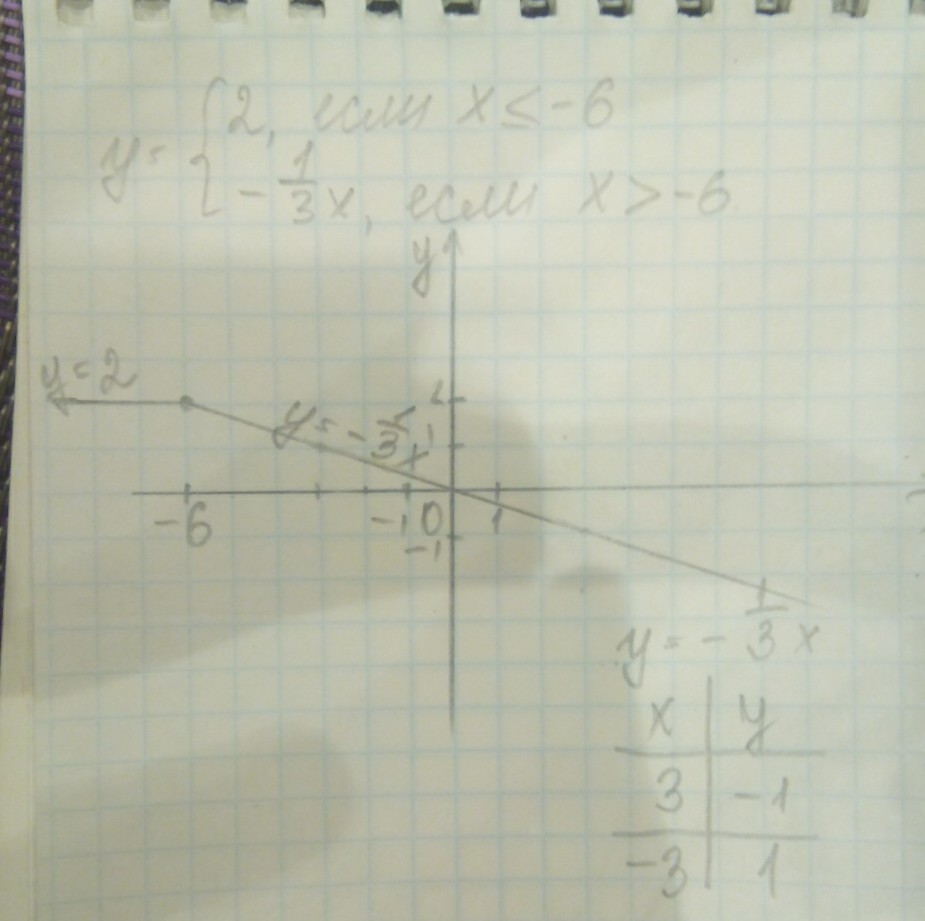 y = { 2, если x ≤ -6
-1/3 x, если x > -6
y
y = 2
2
y = -1/3 x
1
-6
-1
0
1
-1
y = -1/3 x
x | y
3 | -1
-3 | 1